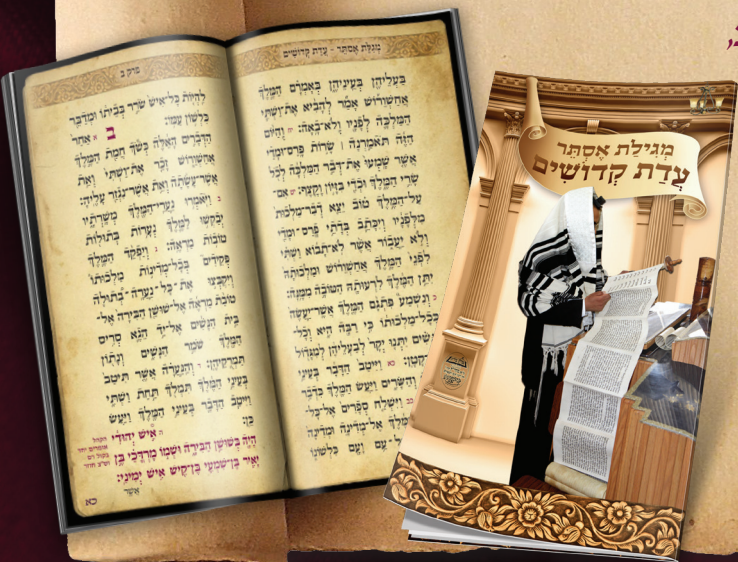 מְגִלַּת אֶסְתֵּר - עֲדַת קְדוֹשִׁים
בַּעְלֵיהֶן בְּעֵינֵיהֶן בְּאָמְרָם הַמֶּלֶךְ
אֲחַשְׁוֵרוֹשׁ אָמַר לְהָבִיא אֶת־וַשְׁתִּי
הַמַּלְכָּה לְפָנָיו וְלֹא־בָאָה: יח וְהַיּוֹם
הַזֶּה תֹּאמַרְנָה | שָׂרוֹת פָּרַס־וּמָדַי
אֲשֶׁר שָׁמְעוּ אֶת־דְּבַר הַמַּלְכָּה לְכֹל
שָׂרֵי הַמֶּלֶךְ וּכְדַי בִּזָּיוֹן וָקָצֶף: יט אִם־
עַל־הַמֶּלֶךְ טוֹב יֵצֵא דְבַר־מַלְכוּת
מִלְּפָנָיו וְיִכָּתֵב בְּדָתֵי פָרַס־וּמָדַי
וְלֹא יַעֲבוֹר אֲשֶׁר לֹא־תָבוֹא וַשְׁתִּי
לִפְנֵי הַמֶּלֶךְ אֲחַשְׁוֵרוֹשׁ וּמַלְכוּתָהּ
יִתֵּן הַמֶּלֶךְ לִרְעוּתָהּ הַטּוֹבָה מִמֶּנָּה:
כ וְנִשְׁמַע פִּתְגָם הַמֶּלֶךְ אֲשֶׁר־יַעֲשֶׂה
בְּכָל־מַלְכוּתוֹ כִּי רַבָּה הִיא וְכָל־
יִתְּנוּ יְקָר לְבַעְלֵיהֶן לְמִגָּדוֹל
כא וַיִּיטַב הַדָּבָר בְּעֵינֵי
וְהַשָּׂרִים וַיַּעַשׂ הַמֶּלֶךְ כִּדְבַר
כב וַיִּשְׁלַח סְפָרִים אֶל־כָּל־
הַמֶּלֶךְ אֶל־מְדִינָה וּמְדִינָה
עַם וָעָם כִּלְשׁוֹנוֹ
פרק ב
לִהְיוֹת כָּל־אִישׁ שֹׂרֵר בְּבֵיתוֹ וּמְדַבֵּר
כִּלְשׁוֹן עַמּוֹ: ב א אַחַר
הַדְּבָרִים הָאֵלֶּה כְּשֹׁךְ חֲמַת הַמֶּלֶךְ
אֲחַשְׁוֵרוֹשׁ זָכַר אֶת־וַשְׁתִּי וְאֵת
אֲשֶׁר־עָשָׂתָה וְאֵת אֲשֶׁר־נִגְזַר עָלֶיהָ:
ב וַיֹּאמְרוּ נַעֲרֵי־הַמֶּלֶךְ מְשָׁרְתָיו
יְבַקְשׁוּ לַמֶּלֶךְ נְעָרוֹת בְּתוּלוֹת
טוֹבוֹת מַרְאֶה: ג וְיַפְקֵד הַמֶּלֶךְ
פְּקִידִים בְּכָל־מְדִינוֹת מַלְכוּתוֹ
וְיִקְבְּצוּ אֶת־כָּל־נַעֲרָה־בְתוּלָה
טוֹבַת מַרְאֶה אֶל־שׁוּשַׁן הַבִּירָה אֶל־
בֵּית הַנָּשִׁים אֶל־יַד הֵגֶא סְרִיס
הַמֶּלֶךְ שֹׁמֵר הַנָּשִׁים וְנָתוֹן
תַּמְרֻקֵיהֶן: ד וְהַנַּעֲרָה אֲשֶׁר תִּיטַב
בְּעֵינֵי הַמֶּלֶךְ תִּמְלֹךְ תַּחַת וַשְׁתִּי
וַיִּיטַב הַדָּבָר בְּעֵינֵי הַמֶּלֶךְ וַיַּעַשׂ
כֵּן: ה אִישׁ יְהוּדִי
הָיָה בְּשׁוּשַׁן הַבִּירָה וּשְׁמוֹ מָרְדֳּכַי בֶּן
יָאִיר בֶּן־שִׁמְעִי בֶּן־קִישׁ אִישׁ יְמִינִי:
אֲשֶׁר
הקהל
אומרים יחד
בקול רם
וש"צ חוזר
כא
מְגִילַת אֶסְתֵּר
עֲדַת קְדוֹשִׁים